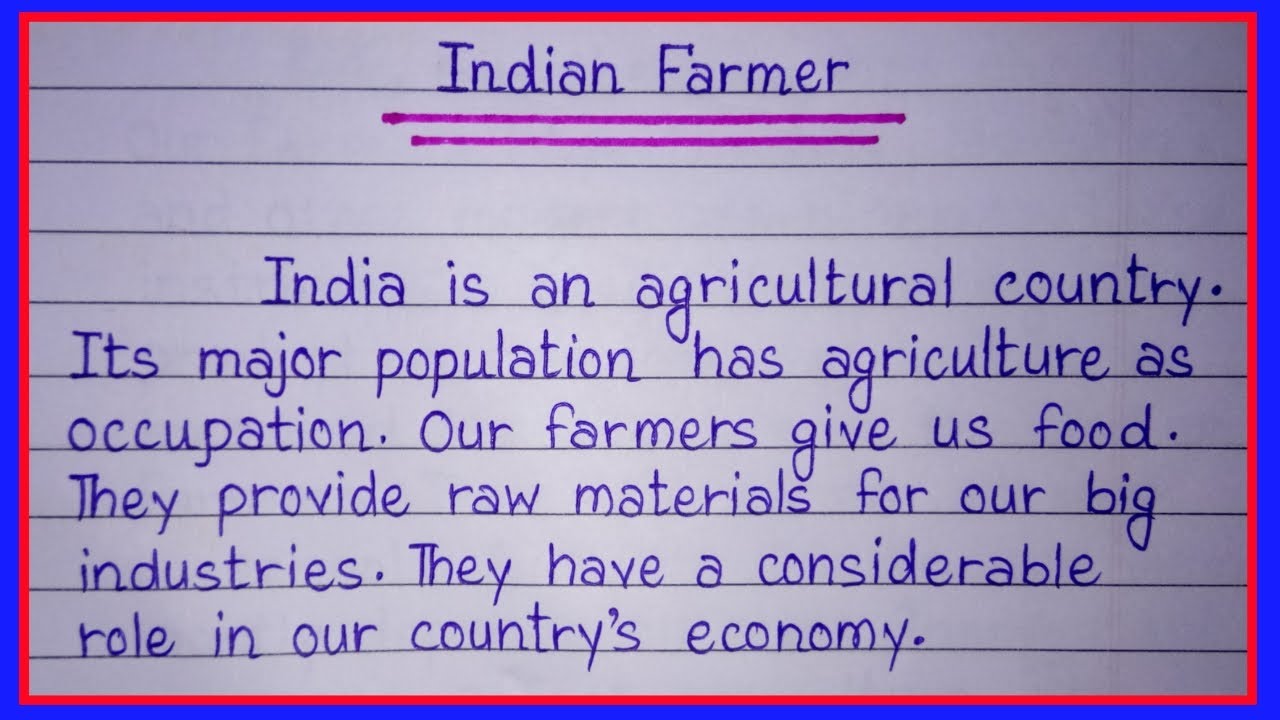 Indian Farmer
India is an agricultural country.
Its major population has agriculture as
occupation. Our farmers give us food.
They provide raw materials for our big
industries. They have a considerable
role in our country's economy.